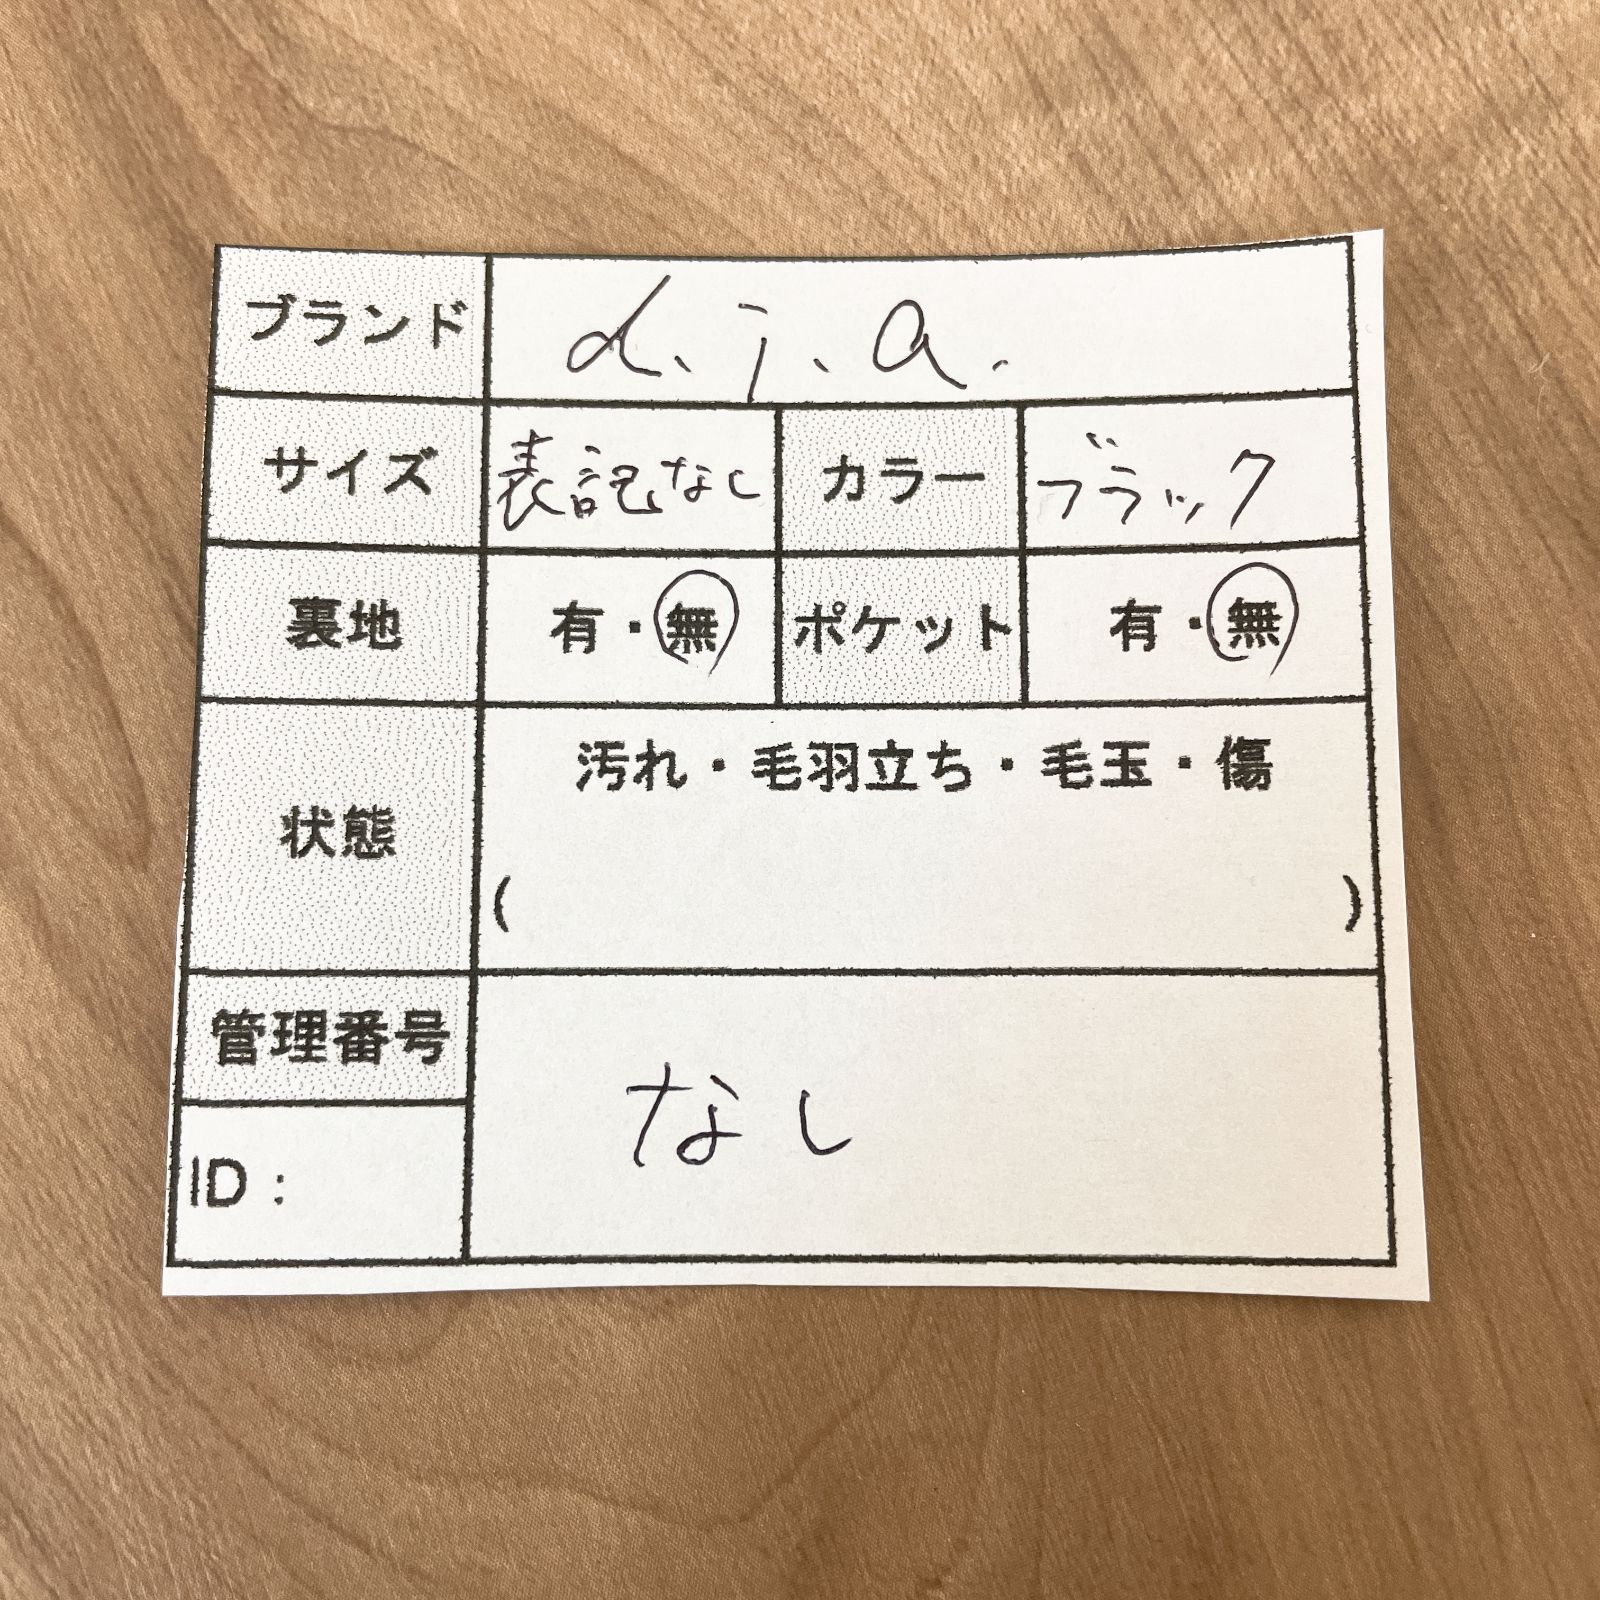 ブランド d.j.a.
サイズ 表記なし カラー ブラック
裏地 有・無 ポケット 有・無
汚れ・毛羽立ち・毛玉・傷
状態
( )
管理番号
なし
ID：